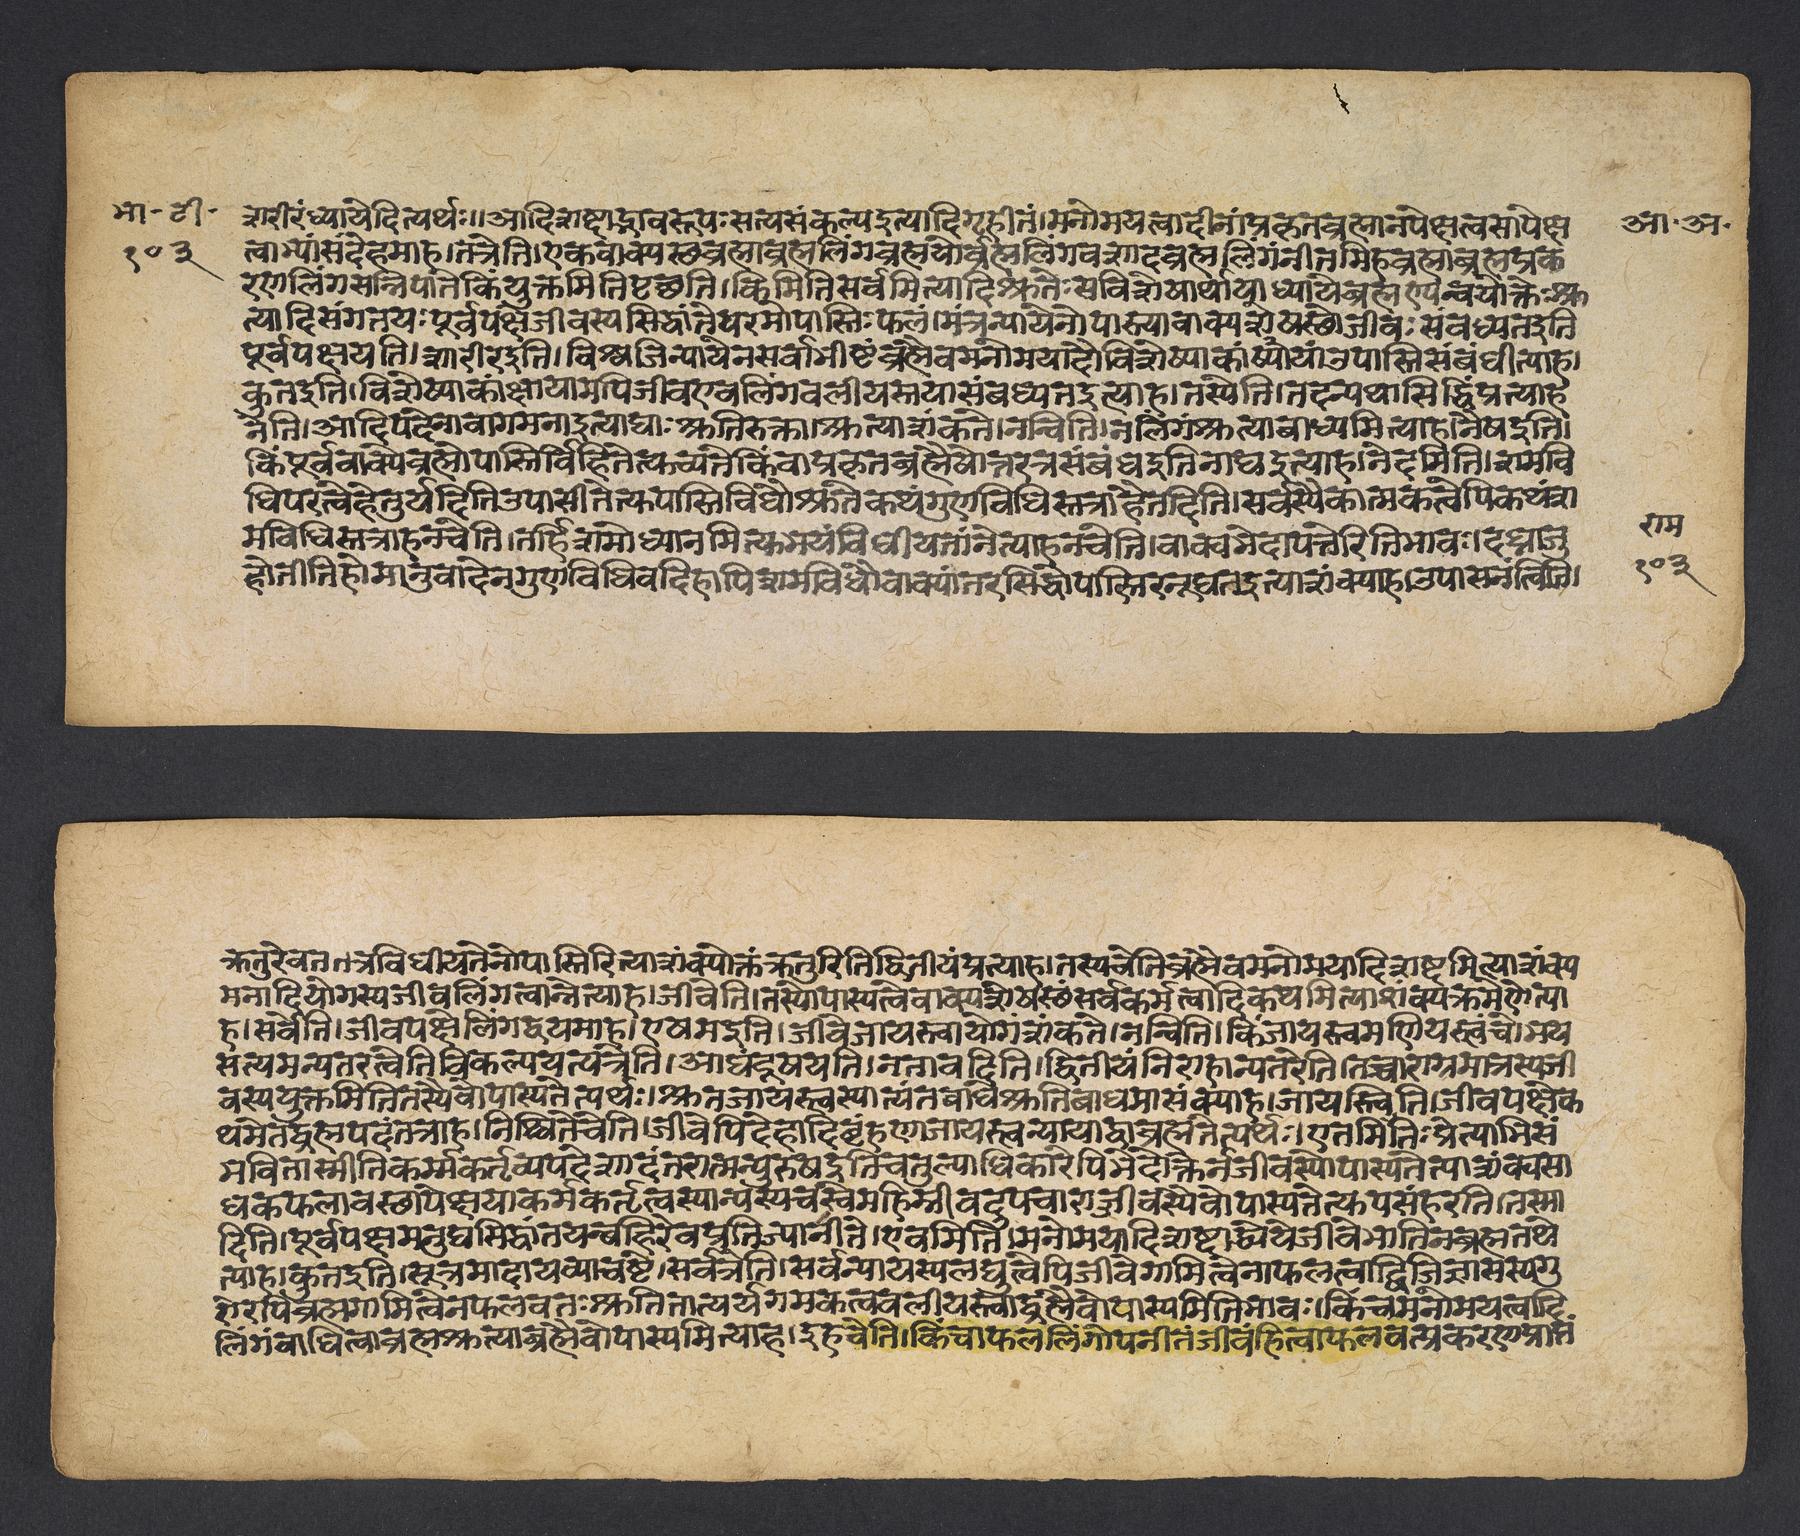 भा-टी-
१०३
शरीरंध्यायेदित्यर्थः॥आदिशब्दाद्भारूपःसत्यसंकल्पइत्यादिगृहीतं।मनोमयत्वादीनांप्रकृतब्रह्मानपेक्षत्वसापेक्ष
आ.अ.
त्वाभ्यांसंदेहमाह।तत्रेति।एकवाक्यस्थब्रह्माब्रह्मलिंगब्रह्मणोर्ब्रह्मलिंगवशादब्रह्मलिंगंनीतमिहब्रह्माब्रह्मप्रक
रणलिंगसन्निपातेकिंयुक्तमितिपृच्छति।किमितिसर्वमित्यादिश्रुतेःसविशेषार्थायाध्यायेब्रह्मण्येन्वयोक्तेःश्रु
त्यादिसंगतयःपूर्वपक्षेजीवस्यसिद्धांतेपरमोपास्तिःफलं।मंत्रन्यायेनोपास्त्यावाक्यशेषस्थोजीवःसंबध्यतइति
पूर्वपक्षयति।शारीरइति।विश्वजिन्न्यायेनसर्वाभीष्टंब्रह्मैवमनोमयादौविशेष्याकांक्षायांउपास्तिसंबंधीत्याह।
कुतइति।विशेष्याकांक्षायामपिजीवएवलिंगबलीयस्तयासंबध्यतइत्याह।तस्येति।तदन्यथासिद्धिंप्रत्याह
नेति।आदिपदेनावागमनाइत्याद्याःश्रुतिरुक्ता।श्रुत्याशंकते।नन्विति।नलिंगंश्रुत्याबाध्यमित्याह।नैषइति।
किंपूर्ववाक्येब्रह्मोपास्तिर्विहितेत्युच्यतेकिंवाप्रकृतब्रह्मैषोत्तरत्रसंबंधइतिनाद्यइत्याह।नेदमिति।शमवि
धिपरत्वेहेतुर्यदितिउपासीतेत्युपास्तिविधौश्रुतेकथंगुणविधिस्तत्राहैतदिति।सर्वस्यैकात्मकत्वेपिकथंश
मविधिस्तत्राहनचेति।तर्हिशमोध्यानमित्युभयंविधीयतांनेत्याहनचेति।वाक्यभेदापत्तेरितिभावः।दध्नाजु
राम
होतीतिहोमानुवादेनगुणविधिवदिहापिशमविधौवाक्यांतरसिद्धोपास्तिरनूद्यतइत्याशंक्याह।उपासनंत्विति।
१०३
क्रतुरेवत्तत्रविधीयतेनोपास्तिरित्याशंक्योक्तंक्रतुरितिद्वितीयंप्रत्याह।तस्यचेतिब्रह्मैवमनोमयादिशब्दमित्याशंक्य
मनादियोगस्यजीवलिंगत्वान्नेत्याह।जीवेति।तस्योपास्यत्वेवाक्यशेषस्थंसर्वकर्मत्वादिकथमित्याशंक्यक्रमेणेत्या
ह।सर्वेति।जीवपक्षेलिंगद्वयमाह।एषमइति।जीवेज्यायस्त्वायोगंशंकते।नन्विति।किंज्यायस्त्वमणीयस्त्वंचोभय
सत्यमन्यतरत्वेतिविकल्पयत्यत्रेति।आद्यंदूषयति।नतावदिति।द्वितीयंनिराहान्यतरेति।तच्चाराग्रमात्रस्यजी
वस्ययुक्तमितितस्यैवोपास्यतेत्यर्थः।श्रुतज्यायस्त्वस्यात्यंतबाधेश्रुतिबाधमासंक्याह।ज्यायस्त्विति।जीवपक्षेक
थमेतद्ब्रह्मपदंतत्राह।निश्चितेचेति।जीवेपिदेहादिबृंहणाज्यायस्त्वन्यायाद्वाब्रह्मतेत्यर्थः।एतमितिःप्रेत्याभिसं
भवितास्मीतिकर्म्मकर्तृव्यपदेशादंतरात्मन्पुरुषइतिचतुल्याधिकारेपिभेदोक्तेर्नजीवस्योपास्यतेत्याशंक्यसा
धकफलावस्थापेक्षयाकर्मकर्तृत्वस्यान्यस्यचस्वेमहिम्नीवदुपचाराज्जीवस्यैवोपास्यतेत्युपसंहरति।तस्मा
दिति।पूर्वपक्षमनुद्यसिद्धांतयन्बहिरेवप्रतिज्यानीते।एवमिति।मनोमयादिशब्दाद्ध्येयेजीवेभातिनब्रह्मतथे
त्याह।कुतइति।सूत्रमादायव्याचष्टे।सर्वत्रेति।सर्वन्यायस्यलघुत्वेपिजीवेगामित्वेनाफलत्वाद्विजिज्ञासस्यगु
रोरपिब्रह्मगामित्वेनफलवतःश्रुतितात्पर्यगमकत्वबलीयस्त्वाद्ब्रह्मैवोपास्यमितिभावः।किंचमनोमयत्वादि
लिंगंबाधित्वाब्रह्मश्रुत्याब्रह्मैवोपास्यमित्याह।इहचेति।किंचाफललिंगोपनीतंजीवंहित्वाफलवत्प्रकरणप्राप्तं